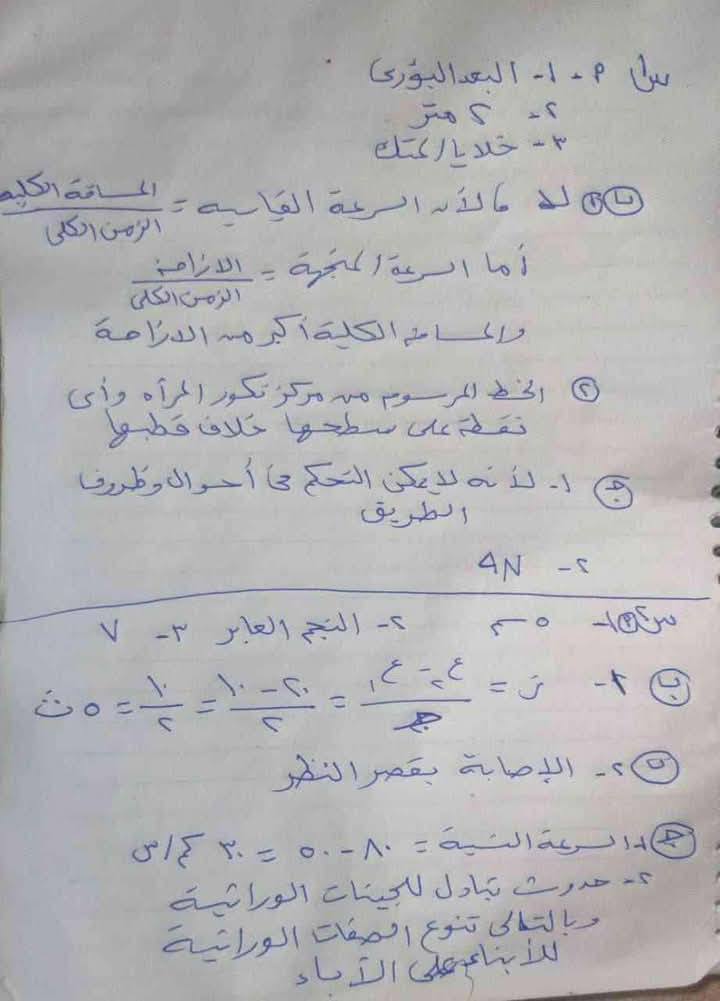 س١ P - ١- البعد البؤرى
٢- ٢ متر
٣- خلايا المتك
ب ١ لا ، لأن السرعة القياسيه = المسافة الكليه / الزمن الكلى
أما السرعة المتجهة = الازاحة / الزمن الكلى
والمسافه الكلية أكبر من الازاحة
٢ الخط المرسوم من مركز تكور المرآه وأى
نقطة على سطحها خلاف قطبها
ج ١- لأنه لا يمكن التحكم فى أحوال وظروف
الطريق
٢- 4N
س٢ P ١- ٥ سم ٢- النجم العابر ٣- ٧
ب ١- ز = ع٢ - ع١ / ج = ٢٠ - ١٠ / ٢ = ١٠ / ٢ = ٥ ث
ب ٢- الإصابة بقصر النظر
ج ١- السرعة النسبية = ٨٠ - ٥٠ = ٣٠ كم/س
٢- حدوث تبادل للجينات الوراثية
وبالتالى تنوع الصفات الوراثية
للأبناء على الآباء